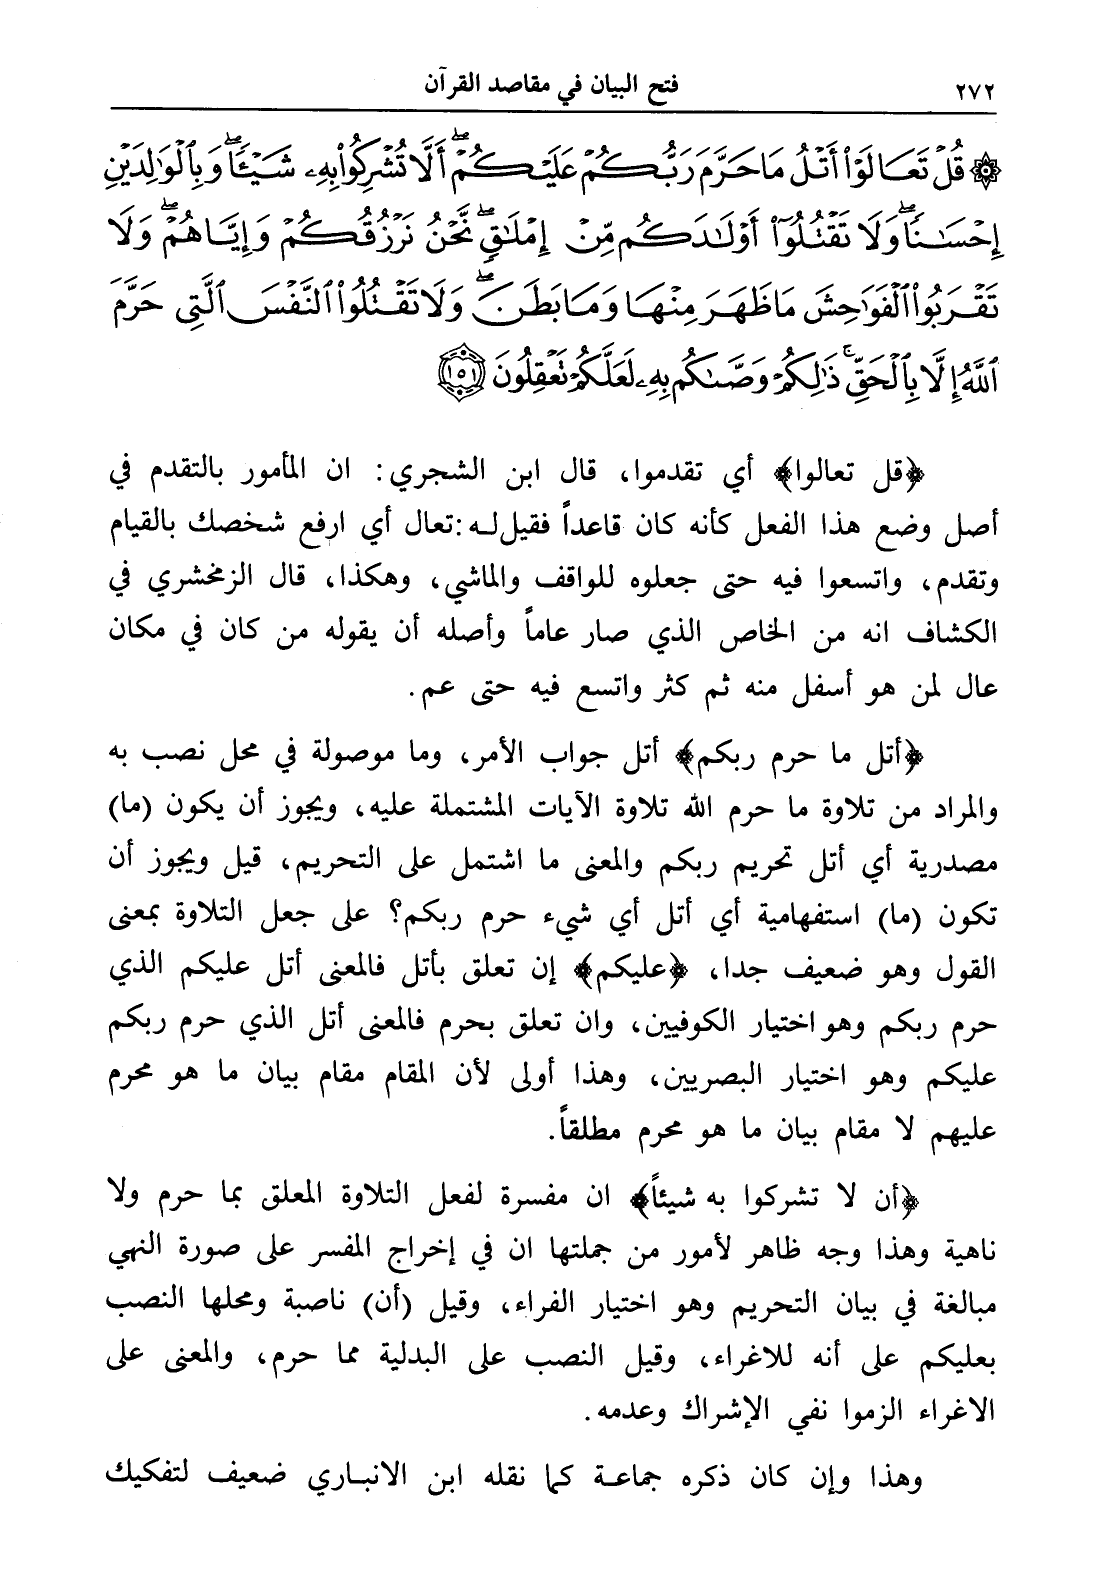 ٢٧٢ فتح البيان في مقاصد القرآن
۞ قُلْ تَعَالَوْا۟ أَتْلُ مَا حَرَّمَ رَبُّكُمْ عَلَيْكُمْ ۖ أَلَّا تُشْرِكُوا۟ بِهِۦ شَيْـًٔا ۖ وَبِٱلْوَٰلِدَيْنِ
إِحْسَـٰنًا ۖ وَلَا تَقْتُلُوٓا۟ أَوْلَـٰدَكُم مِّنْ إِمْلَـٰقٍ ۖ نَّحْنُ نَرْزُقُكُمْ وَإِيَّاهُمْ ۖ وَلَا
تَقْرَبُوا۟ ٱلْفَوَٰحِشَ مَا ظَهَرَ مِنْهَا وَمَا بَطَنَ ۖ وَلَا تَقْتُلُوا۟ ٱلنَّفْسَ ٱلَّتِى حَرَّمَ
ٱللَّهُ إِلَّا بِٱلْحَقِّ ۚ ذَٰلِكُمْ وَصَّىٰكُم بِهِۦ لَعَلَّكُمْ تَعْقِلُونَ ١٥١
﴿قل تعالوا﴾ أي تقدموا، قال ابن الشجري: ان المأمور بالتقدم في
أصل وضع هذا الفعل كأنه كان قاعداً فقيل له: تعال أي ارفع شخصك بالقيام
وتقدم، واتسعوا فيه حتى جعلوه للواقف والماشي، وهكذا، قال الزمخشري في
الكشاف انه من الخاص الذي صار عاماً وأصله أن يقوله من كان في مكان
عال لمن هو أسفل منه ثم كثر واتسع فيه حتى عم.
﴿أتل ما حرم ربكم﴾ أتل جواب الأمر، وما موصولة في محل نصب به
والمراد من تلاوة ما حرم الله تلاوة الآيات المشتملة عليه، ويجوز أن يكون (ما)
مصدرية أي أتل تحريم ربكم والمعنى ما اشتمل على التحريم، قيل ويجوز أن
تكون (ما) استفهامية أي أتل أي شيء حرم ربكم؟ على جعل التلاوة بمعنى
القول وهو ضعيف جدا، ﴿عليكم﴾ إن تعلق بأتل فالمعنى أتل عليكم الذي
حرم ربكم وهو اختيار الكوفيين، وان تعلق بحرم فالمعنى أتل الذي حرم ربكم
عليكم وهو اختيار البصريين، وهذا أولى لأن المقام مقام بيان ما هو محرم
عليهم لا مقام بيان ما هو محرم مطلقاً.
﴿أن لا تشركوا به شيئاً﴾ ان مفسرة لفعل التلاوة المعلق بما حرم ولا
ناهية وهذا وجه ظاهر لأمور من جملتها ان في إخراج المفسر على صورة النهي
مبالغة في بيان التحريم وهو اختيار الفراء، وقيل (أن) ناصبة ومحلها النصب
بعليكم على أنه للاغراء، وقيل النصب على البدلية مما حرم، والمعنى على
الاغراء الزموا نفي الإشراك وعدمه.
وهذا وإن كان ذكره جماعة كما نقله ابن الانباري ضعيف لتفكيك